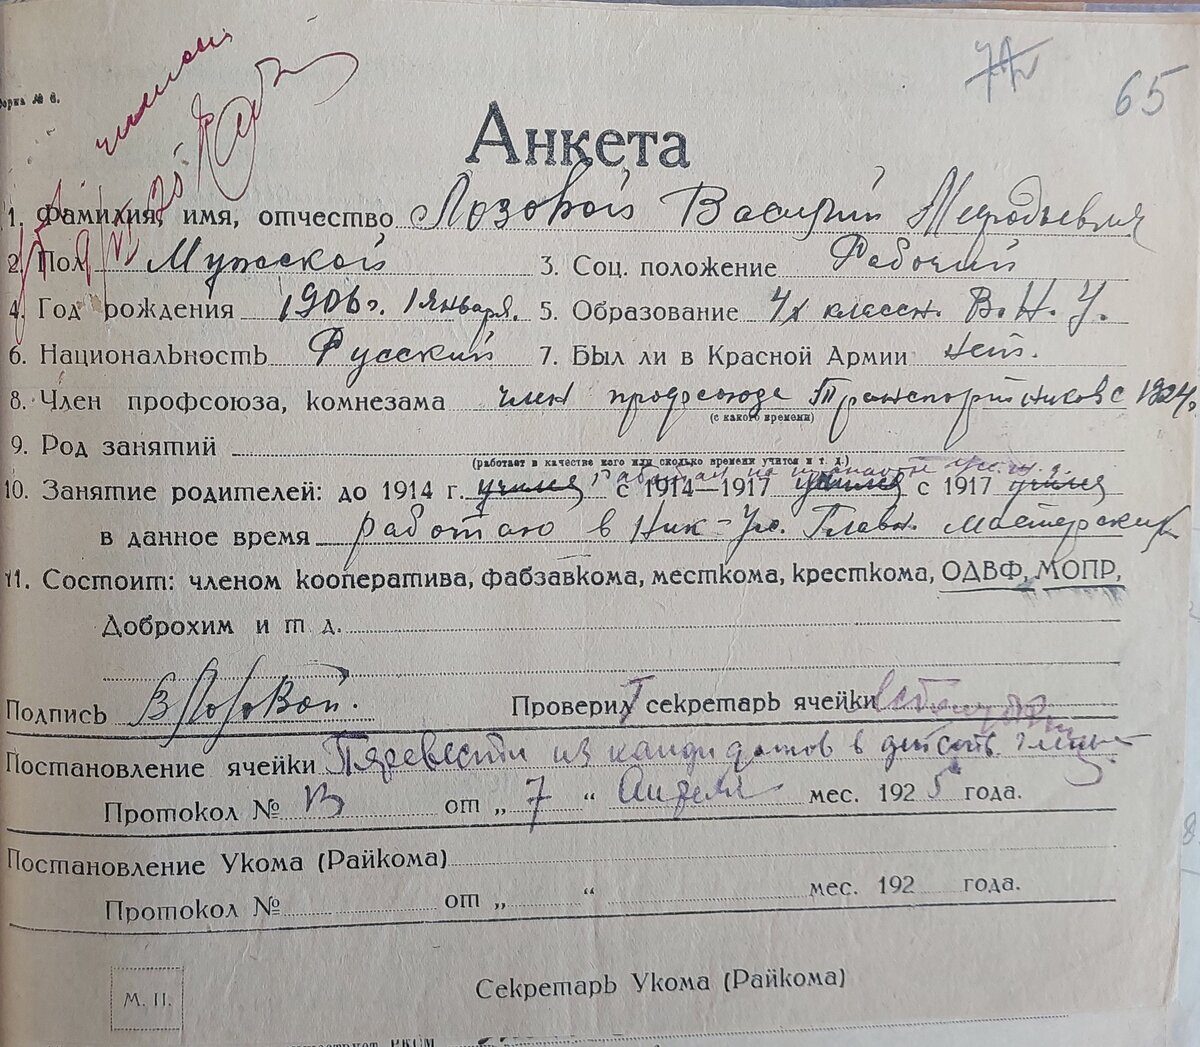 65
Анкета
1. Фамилия, имя, отчество Лозовой Василий Мефодьевич
2. Пол Мужской 3. Соц. положение Рабочий
4. Год рождения 1906 г. 1 января. 5. Образование 4х классн. В.Н.У.
6. Национальность Русский 7. Был ли в Красной Армии Нет.
8. Член профсоюза, комнезама член профсоюза Транспортников с 1924 г.
(с какого времени)
9. Род занятий
(работает в качестве кого или сколько времени учится и т. д.)
10. Занятие родителей: до 1914 г. учился с 1914—1917 учился с 1917 учился
в данное время работаю в Ник-Ус. Главн. Мастерских
11. Состоит: членом кооператива, фабзавкома, месткома, кресткома, ОДВФ, МОПР,
Доброхим и т д.
Подпись В Лозовой. Проверил секретарь ячейки
Постановление ячейки Перевести из кандидатов в действ. члены
Протокол № 13 от „ 7 “ Апреля мес. 1925 года.
Постановление Укома (Райкома)
Протокол № от „ “ мес. 192 года.
Секретарь Укома (Райкома)
М. П.
РКСМ